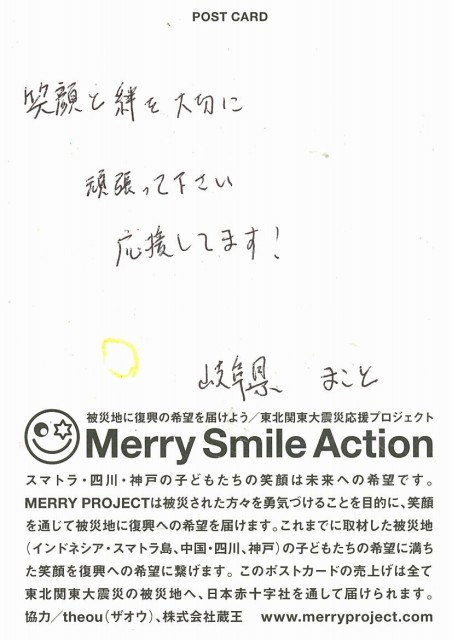 POST CARD
笑顔と絆を大切に
頑張って下さい
応援してます!
岐阜県 まこと
被災地に復興の希望を届けよう/東北関東大震災応援プロジェクト
Merry Smile Action
スマトラ・四川・神戸の子どもたちの笑顔は未来への希望です。
MERRY PROJECTは被災された方々を勇気づけることを目的に、笑顔
を通じて被災地に復興への希望を届けます。これまでに取材した被災地
(インドネシア・スマトラ島、中国・四川、神戸)の子どもたちの希望に満ち
た笑顔を復興への希望に繋げます。このポストカードの売上げは全て
東北関東大震災の被災地へ、日本赤十字社を通して届けられます。
協力/theou(ザオウ)、株式会社蔵王 www.merryproject.com